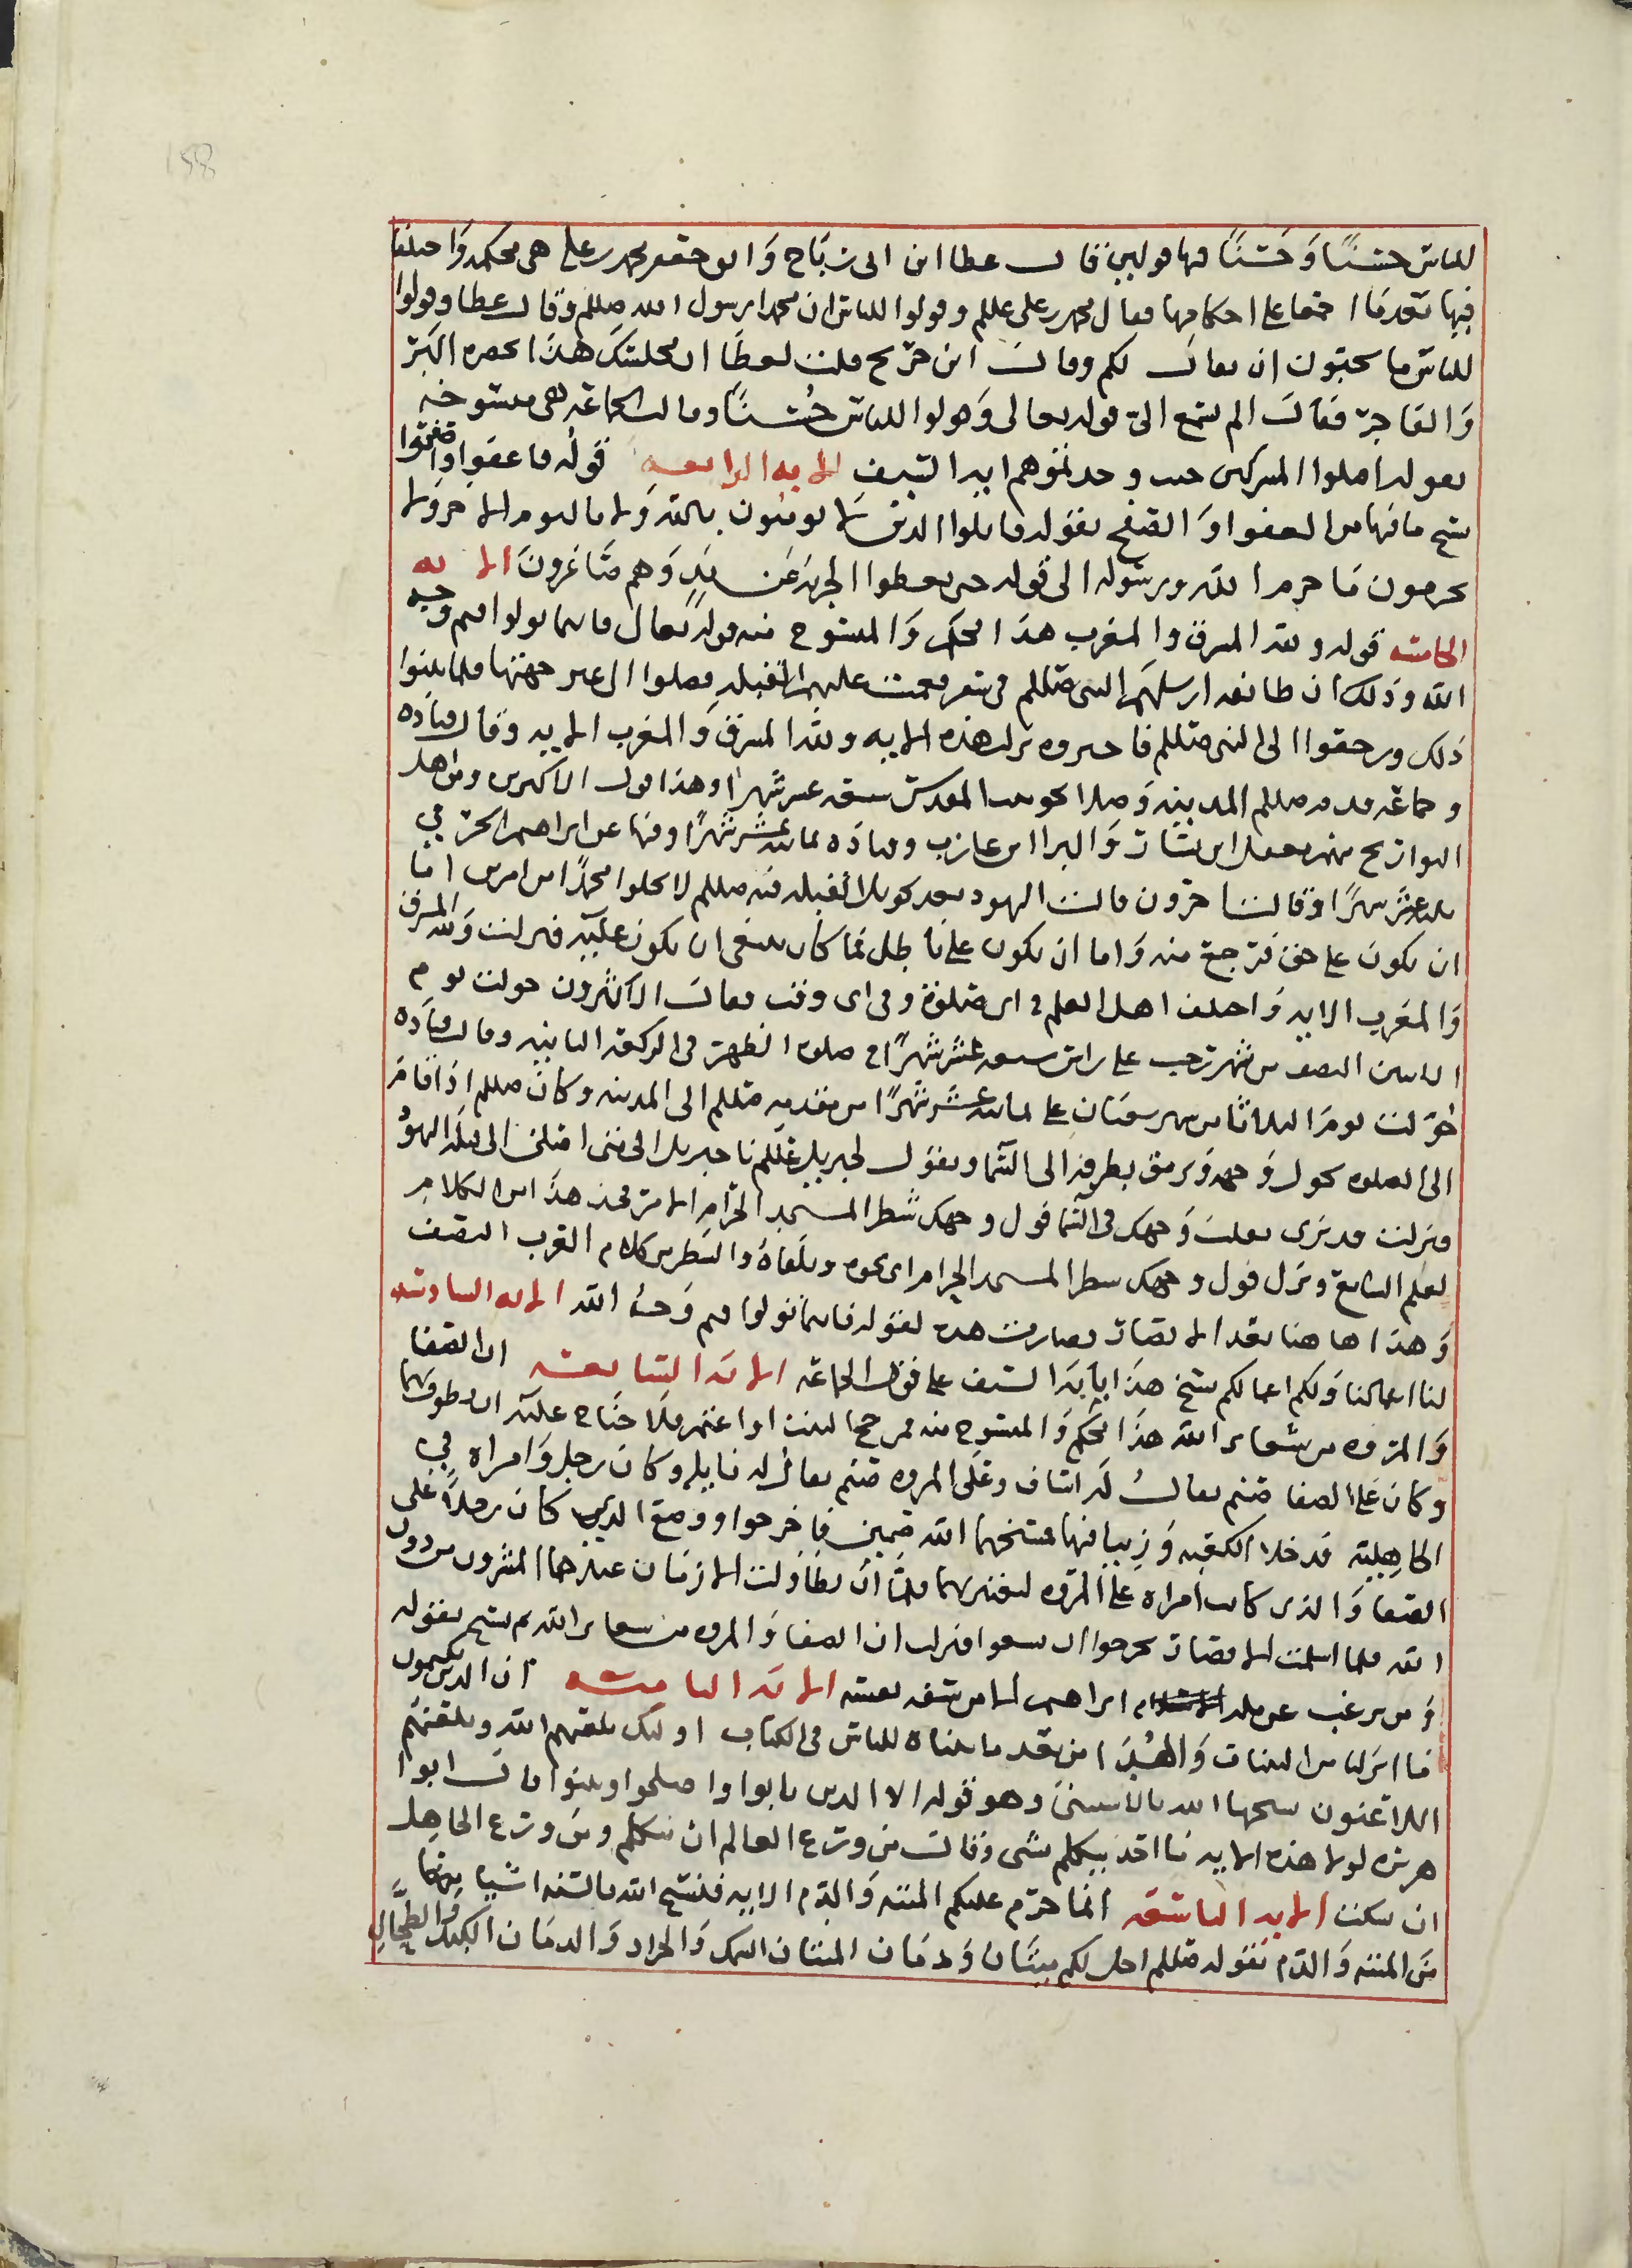 158
للناس حسنًا وَحَسَنًا فيها قولين فقال عطا ابن ابى رَبَاح وَابو جعفر محمد بن على هى محكمه وَاختلفا
فيها بَعد مَا اجتمعا على احكامها فقال محمد بن على عللم وقولوا للناس ان محمدا رسول الله صللم وقال عطا وقولوا
للناس ما يحبون ان يقال لكم وقال ابن جريح قلت لعطَا ان مجلسك هذا يحضره البَر
وَالفاجر فقَال الم تسمع الى قوله تعالى وَقولوا للناس حُسنًا وقالت الجماعَه هى منسوخه
بقوله اقتلوا المشركين حيث وجدتموهم ايه السَيف الايه الرابعه قوله فاعفوا واصفحوا
نسخ ما فيها من العفو اوَ الصَفح بقوله قاتلوا الذين لا يومنون بالله وَلا باليوم الاخر وَلا
يحرمون مَا حرم الله ورسوله الى قوله حتى يعطوا الجزيه عَن يَدٍ وَهم صَاغرونَ الايه
الخامسه قوله ولله المشرق والمغرب هذا محكم وَالمنسوخ منه قوله تعالى فاينما تولوا فثم وجه
الله وذلك ان طائفه ارسلهم النبى صللم فى سفر فعميت عليهم القبله فصلوا الى غير جهتها فلما تبينوا
ذلك ورجعوا الى النبى صللم فاخبروه نزلت هذه الايه ولله المشرق وَالمغرب الايه وقال قتَاده
وجماعَه قدم صللم المدينه وَصلا نحو بيت المقدس سبعه عشر شهرا وهذا قول الاكثرين ومن اهل
التواريخ منهم معقل ابن يسَار وَالبرا ابن عازب وقتاده ثمانيه عشر شهرًا وفيها عن ابراهيم الحرَبي
ثلاثه عشر شهرًا وَقالت اخرون قالت اليهود بعد تحويل القبله فيه صللم لا يخلوا محمدًا من امرين اما
ان يكون على حق فرجع منه وَاما ان يكون على بَاطل فما كان ينبغى ان يكون عليه فنزلت وَلله المشرق
وَالمغرب الايه وَاختلف اهل العلم فى اى صلوَة وفى اى وقت فقالَ الاكثرون حولت يوم
الاثنين النصف من شهر رجب على راس سبعه عَشر شهرًا فى صلاه الظهر فى الركعه الثانيه وقال قتَاده
حَولت يوم الثلاثا من شهر شعبَان على ثمانيه عشر شهرًا من مقدمه صللم الى المدينه وكان صللم اذا قامَ
الى الصلوه يحول وَجهه وَيرمق بطرفه الى السَما ويقول لجبريل عللم يا جبريل الى متى اصلى الى قبله اليهود
فنزلت قد نرى تقلب وَجهك فى السَما فول وجهك شطر المسجد الحرام الامر فحذف هذا من الكلام
لعلم السامع ونزل فول وجهك شطر المسجد الحرام اى نحوه وتلقاهُ والشطر من كلام العَرب النصف
وَهذا ها هنا بَعد الانصَار فصارت هذه لقوله فاينما تولوا فثم وَجهُ الله الايه السادسه
لنا اعمالنا وَلكم اعمالكم نسخ هذا بايَه السَيف على قول الجماعَه الايه السَابعه ان الصفا
وَالمروه من شعاير الله هذا محكم وَالمنسوخ منه فمن حج البيت او اعتمر فلا جنَاح عليه ان يطوف بهما
وكان عَلى الصفا صنم يقالُ له اسَاف وعَلى المروه صنم يقال له نايله وكان رجل وَامراه في
الجاهِلِيَه قد خلا الكعبه وَزنيا فيها فمسخهما الله صنمين فاخرجوا ووضع الذى كان رجلًا عَلى
الصفا وَالذى كانت امراه على المَروه ليعتبر بهما فلما ان تطَاولت الازمَان عبدهما المشركون من دون
الله فلما اسلمت الانصَار تحرجوا ان يسعوا فنزلت ان الصفا وَالمروه من شعاير الله ثم نسخ بقوله
وَمن يرغب عن مله ابراهيم الا من سفه نفسه الايه الثامنه ان الذين يكتمون
مَا انزلنا من البينات وَالهُدَى من بَعد ما بيناه للناس فى الكتاب اولئك يلعنهم الله ويلعنهم
اللاعنون نسخها الله بالاستثنَى وهو قوله الا الذين تابوا واصلحوا وبينوا قال ابوا
هريره لولا هذه الايه مَا احَد يتكلم بشى وَقال من ورَع العالم ان يتكلم ومن ورَع الجاهل
ان يسكت الايه التاسعَه انما حرم عليكم الميته وَالدَم الايه فنسَخ الله بالسنه اشيا منها
من الميته وَالدم بقوله صللم احل لكم ميتتَان وَدمَان الميتتان السمك وَالجراد وَالدمَان الكبد وَالطحَال